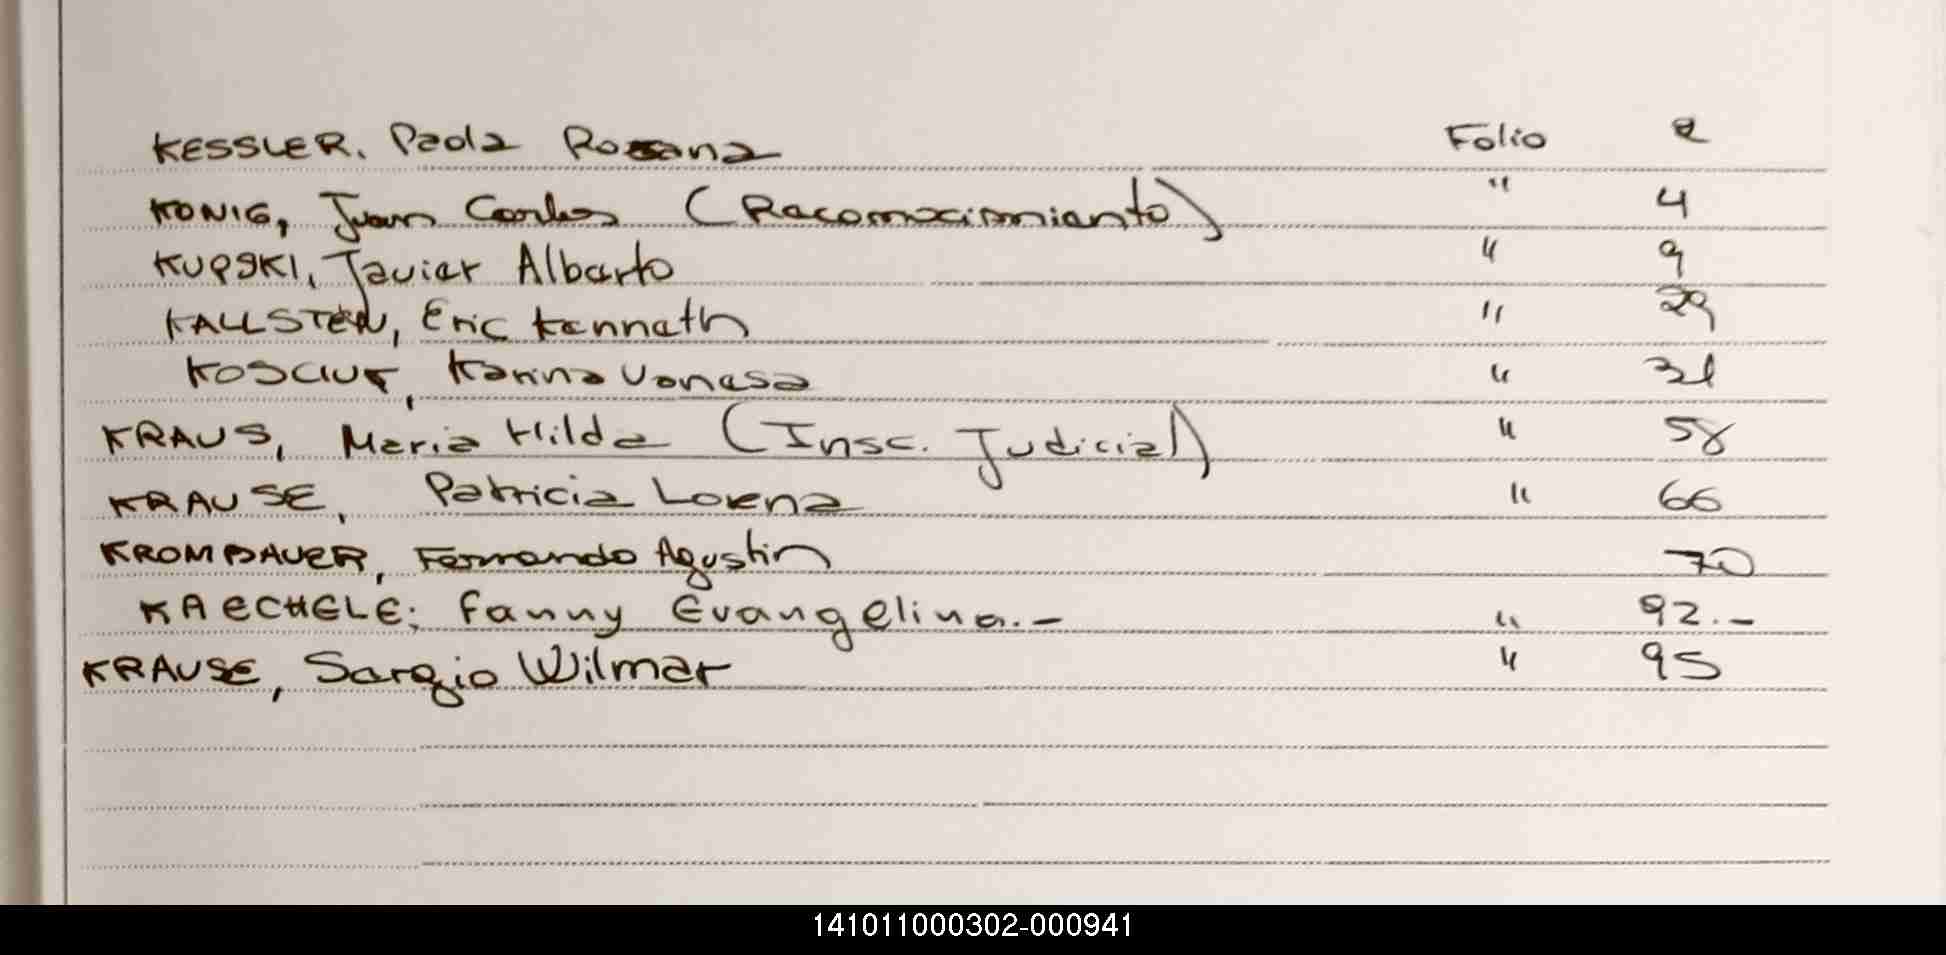 KESSLER, Paola Rossana Folio 2
KONIG, Juan Carlos (Reconocimiento) " 4
KUPSKI, Javier Alberto " 9
KALLSTEN, Eric Kenneth " 29
KOSCIUK, Karina Vanesa " 31
KRAUS, Maria Hilda (Insc. Judicial) " 58
KRAUSE, Patricia Lorena " 66
KROMBAUER, Fernando Agustin 70
KAECHELE; Fanny Evangelina.- " 92.-
KRAUSE, Sergio Wilmar " 95
141011000302-000941